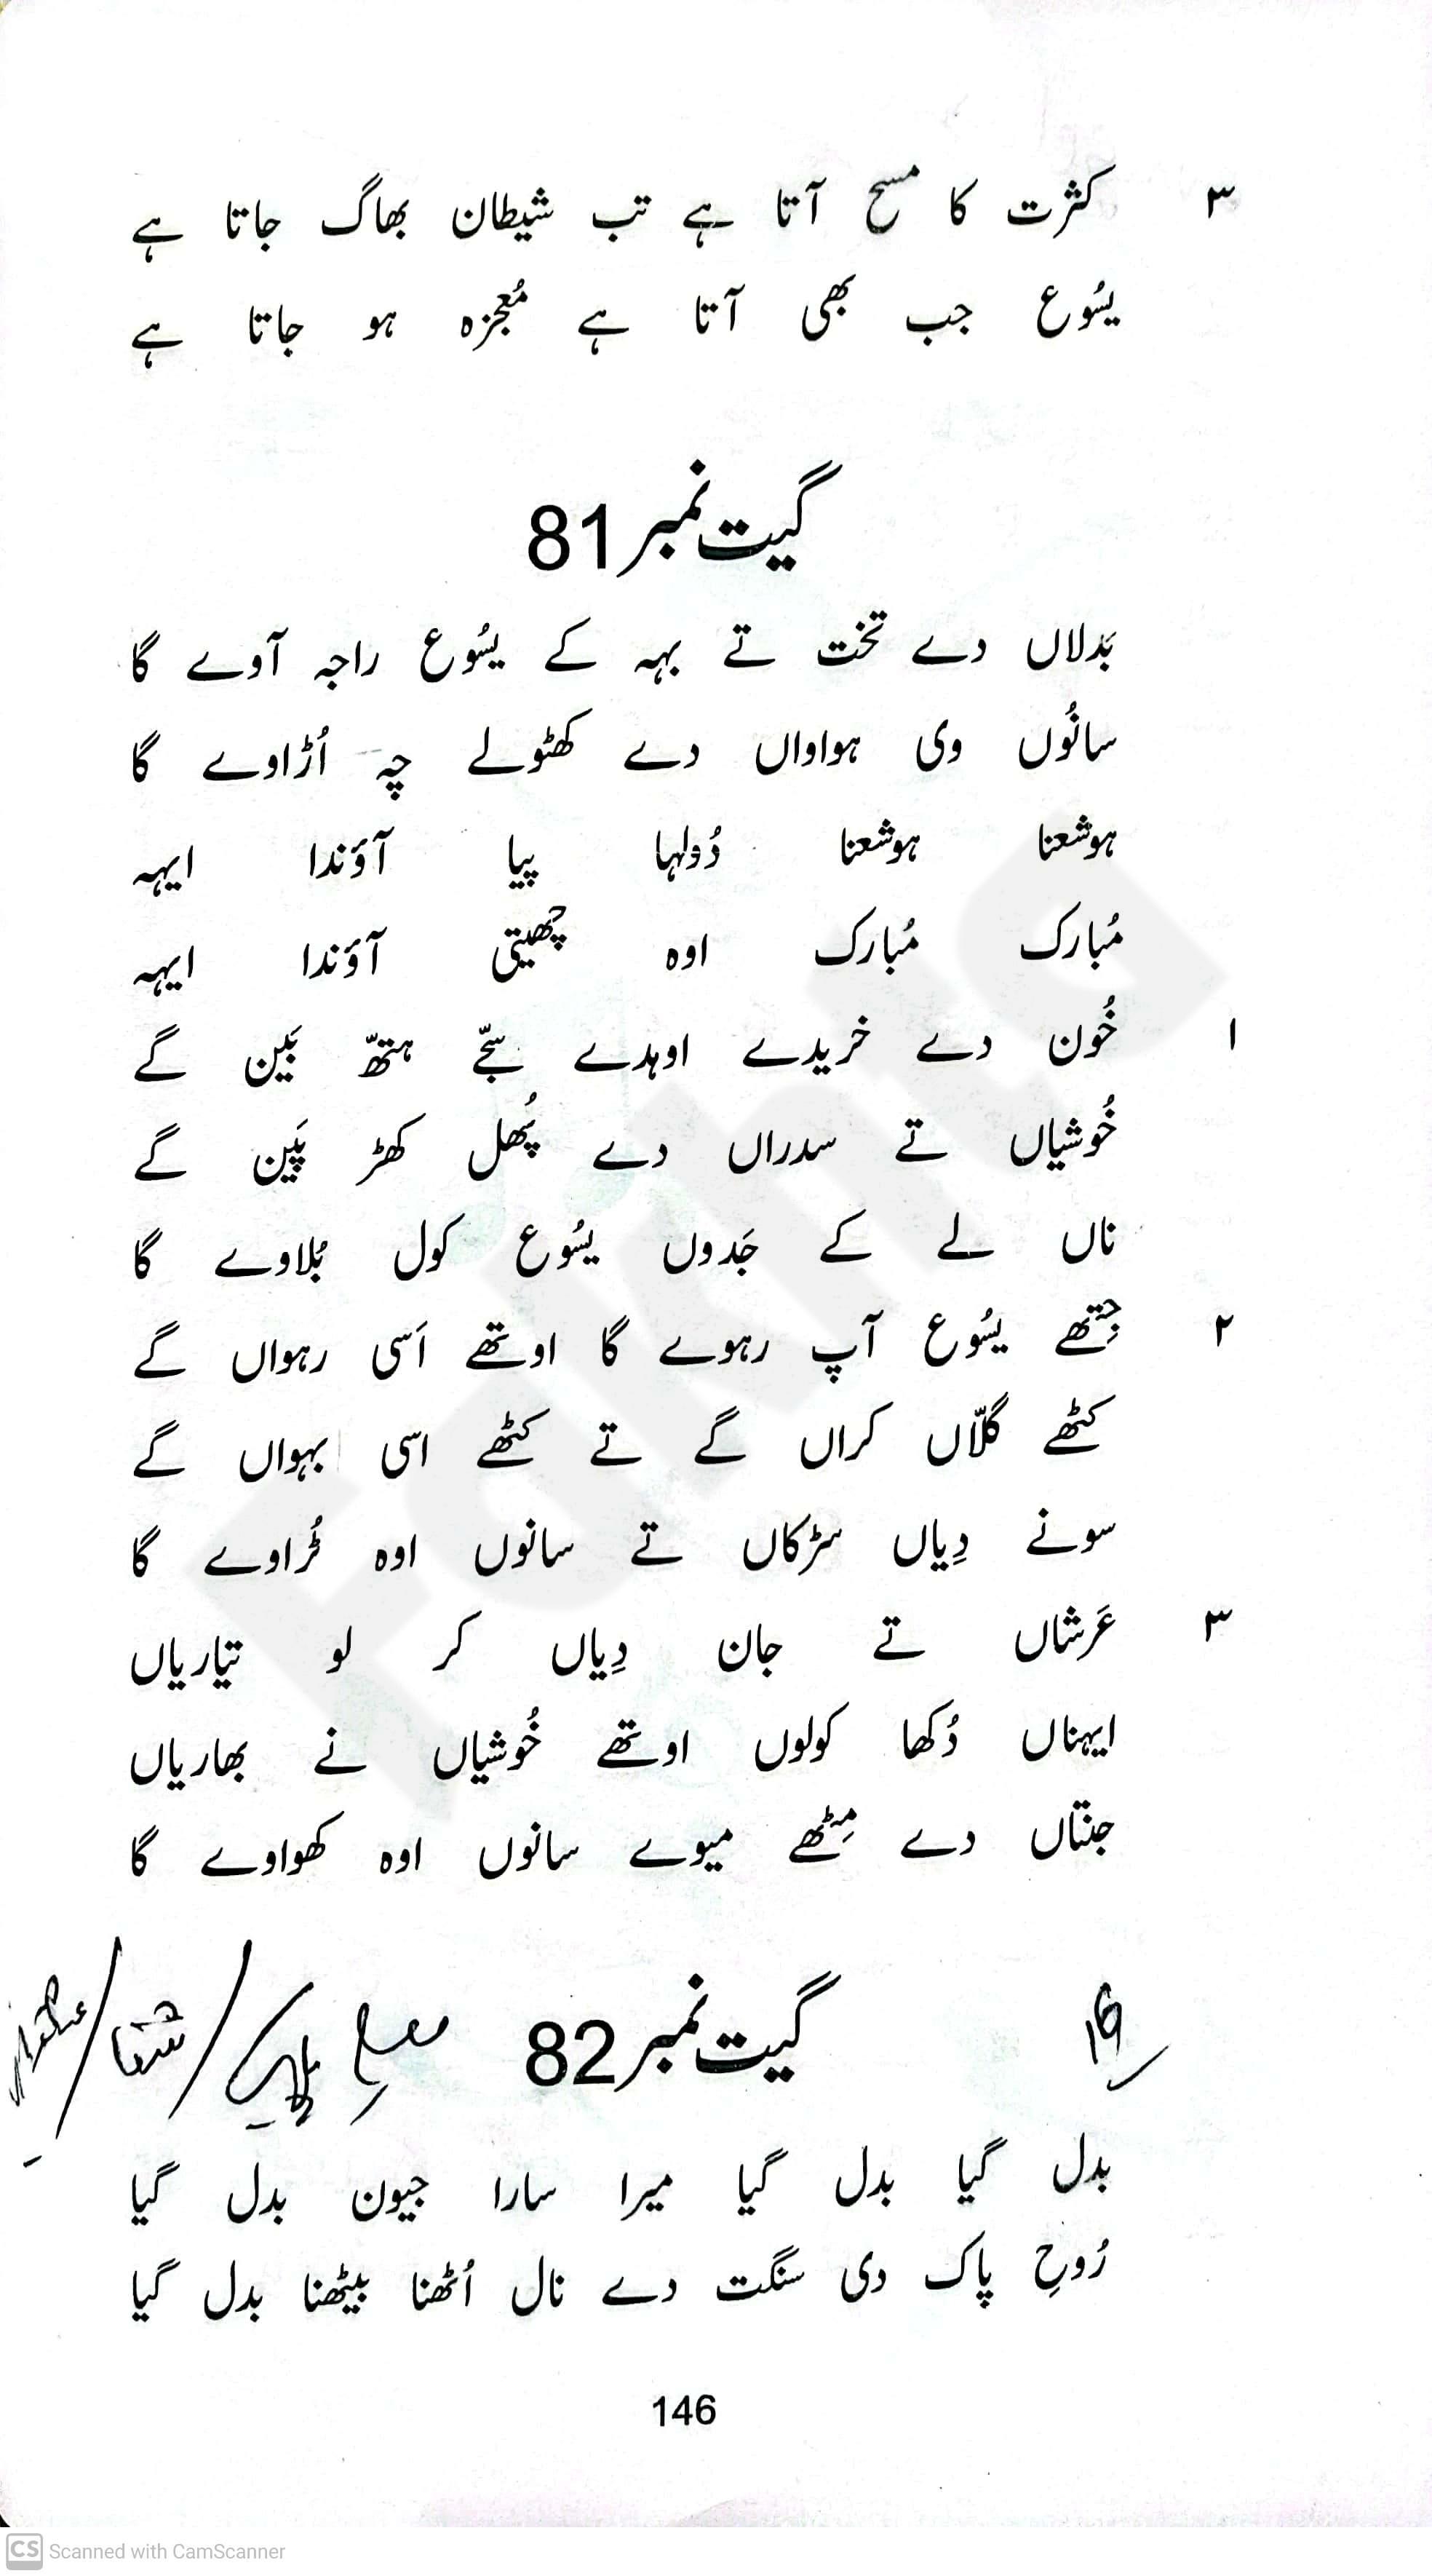 ۳ کثرت کا مسح آتا ہے تب شیطان بھاگ جاتا ہے
یسُوع جب بھی آتا ہے مُعجزہ ہو جاتا ہے
گیت نمبر 81
بَدلاں دے تخت تے بہہ کے یسُوع راجہ آوے گا
سانُوں وی ہواواں دے کھٹولے چہ اُڑاوے گا
ہوشعنا ہوشعنا دُولہا پیا آؤندا ایہہ
مُبارک مُبارک اوہ چھیتی آؤندا ایہہ
۱ خُون دے خریدے اوہدے سجّے ہتھّ بَین گے
خُوشیاں تے سدراں دے پُھل کھڑ پَین گے
ناں لے کے جَدوں یسُوع کول بُلاوے گا
۲ جِتھے یسُوع آپ رہوے گا اوتھے اَسی رہواں گے
کٹھے گلّاں کراں گے تے کٹھے اسی بہواں گے
سونے دِیاں سڑکاں تے سانوں اوہ ٹُراوے گا
۳ عَرشاں تے جان دِیاں کر لو تیّاریاں
ایہناں دُکھا کولوں اوتھے خُوشیاں نے بھاریاں
جنتّاں دے مِٹھے میوے سانوں اوہ کھواوے گا
گیت نمبر 82
شفا
بدل گیا بدل گیا میرا سارا جیون بدل گیا
رُوحِ پاک دی سنگت دے نال اُٹھنا بیٹھنا بدل گیا
146
Fakhta
CS Scanned with CamScanner